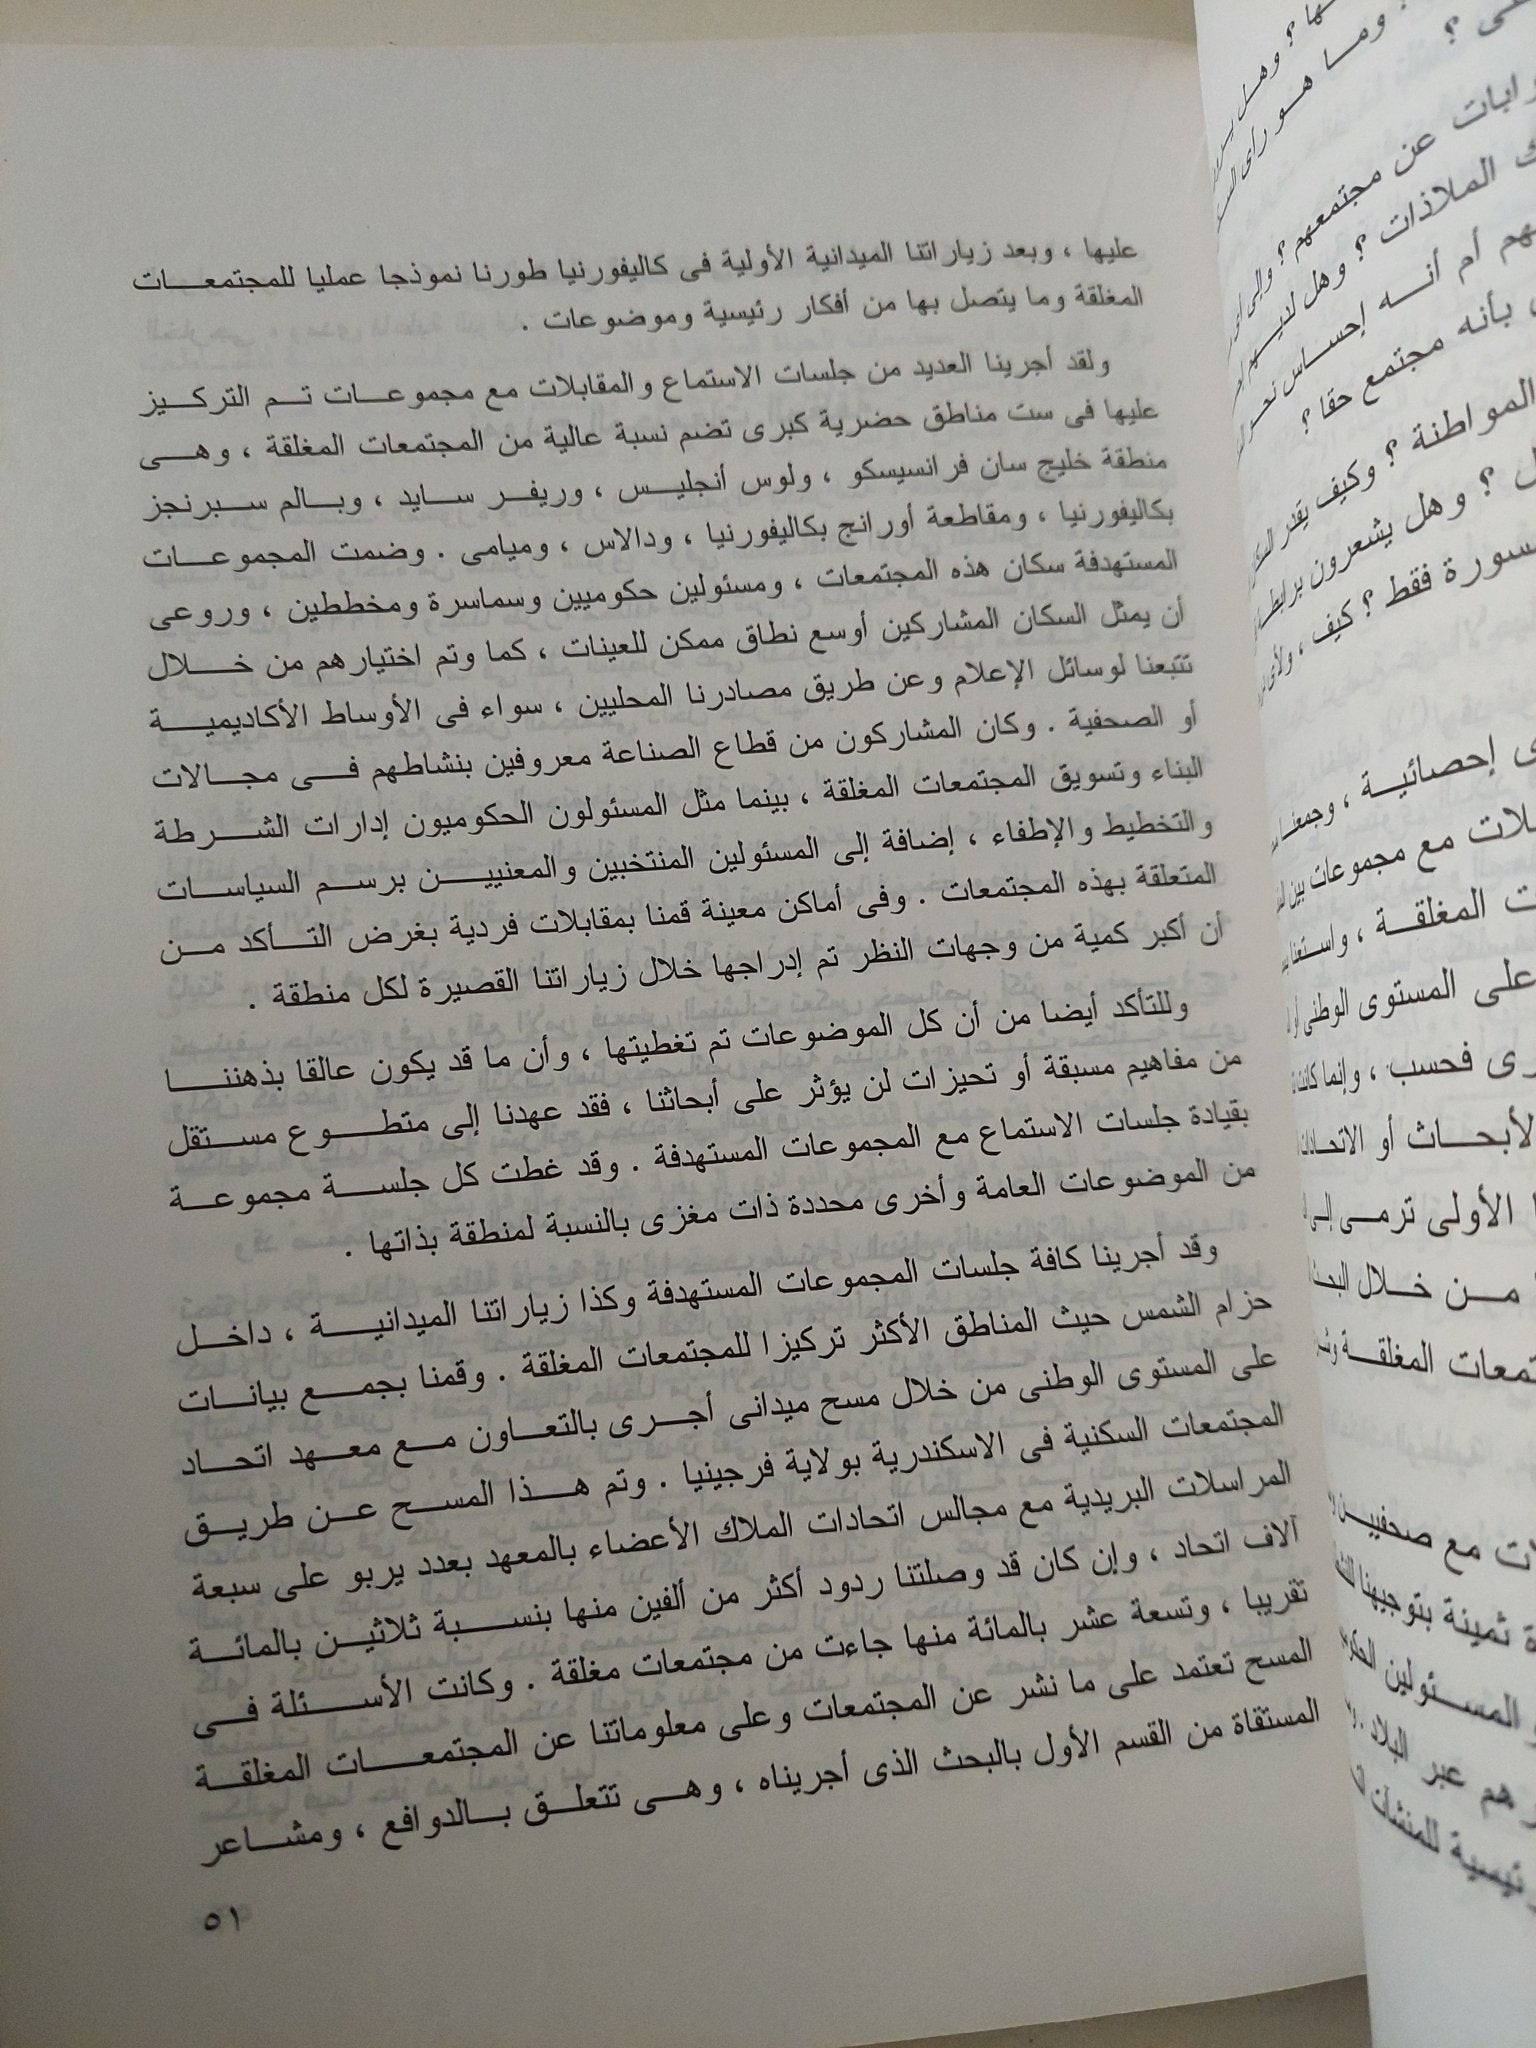 عليها ، وبعد زياراتنا الميدانية الأولية فى كاليفورنيا طورنا نموذجا عمليا للمجتمعـــات
المغلقة وما يتصل بها من أفكار رئيسية وموضوعات .
ولقد أجرينا العديد من جلسات الاستماع والمقابلات مع مجموعـــات تــم التركــيز
عليها فى ست مناطق حضرية كبرى تضم نسبة عالية من المجتمعات المغلقة ، وهــى
منطقة خليج سان فرانسيسكو ، ولوس أنجليــس ، وريفــر ســايد ، وبــالم ســبرنجز
بكاليفورنيا ، ومقاطعة أورانج بكاليفورنيا ، ودالاس ، وميامى . وضمت المجموعــات
المستهدفة سكان هذه المجتمعات ، ومسئولين حكوميين وسماسرة ومخططين ، وروعى
أن يمثل السكان المشاركين أوسع نطاق ممكن للعينات ، كما وتم اختيارهم من خـــلال
تتبعنا لوسائل الإعلام وعن طريق مصادرنا المحليين ، سواء فى الأوساط الأكاديميـــة
أو الصحفية . وكان المشاركون من قطاع الصناعة معروفين بنشاطهم فـــى مجـــالات
البناء وتسويق المجتمعات المغلقة ، بينما مثل المسئولون الحكوميون إدارات الشـــرطة
والتخطيط والإطفاء ، إضافة إلى المسئولين المنتخبين والمعنييــن برســم السياســات
المتعلقة بهذه المجتمعات . وفى أماكن معينة قمنا بمقابلات فردية بغرض التـــأكد مــن
أن أكبر كمية من وجهات النظر تم إدراجها خلال زياراتنا القصيرة لكل منطقة .
وللتأكد أيضا من أن كل الموضوعات تم تغطيتها ، وأن ما قد يكون عالقا بذهننـــا
من مفاهيم مسبقة أو تحيزات لن يؤثر على أبحاثنا ، فقد عهدنا إلى متطــوع مســتقل
بقيادة جلسات الاستماع مع المجموعات المستهدفة . وقد غطت كل جلســة مجموعــة
من الموضوعات العامة وأخرى محددة ذات مغزى بالنسبة لمنطقة بذاتها .
وقد أجرينا كافة جلسات المجموعات المستهدفة وكذا زياراتنا الميدانيـــة ، داخــل
حزام الشمس حيث المناطق الأكثر تركيزا للمجتمعات المغلقة . وقمنا بجمــع بيانــات
على المستوى الوطنى من خلال مسح ميدانى أجــرى بالتعــاون مــع معــهد اتحــاد
المجتمعات السكنية فى الاسكندرية بولاية فرجينيا . وتم هـــذا المســح عــن طريــق
المراسلات البريدية مع مجالس اتحادات الملاك الأعضاء بالمعهد بعدد يربو على سبعة
آلاف اتحاد ، وإن كان قد وصلتنا ردود أكثر من ألفين منها بنســبة ثلاثيــن بالمائــة
تقريبا ، وتسعة عشر بالمائة منها جاءت من مجتمعات مغلقة . وكانت الأســـئلة فــى
المسح تعتمد على ما نشر عن المجتمعات وعلى معلوماتنا عن المجتمعـــات المغلقــة
المستقاة من القسم الأول بالبحث الذى أجريناه ، وهــى تتعلــق بــالدوافع ، ومشــاعر
٥١
؟ وهل
وما هو راى
عن مجتمعهم ؟ وإلى
الملاذات ؟ وهل لديهم
أم أنــه إحســاس نحو
بأنه مجتمع حقا ؟
المواطنة ؟ وكيف يقدر
؟ وهل يشعرون
فقط ؟ كيف ،
إحصائيــة ،
مع مجموعات بين
المغلقــة ،
على المستوى الوطنى
فحسب ، وإنما
أو
الأولى ترمــى
مــن خــلال
المغلقــة
مع
ثمينة بتوجيهنا
المســئولين
عبر البلاد
للمنشآت